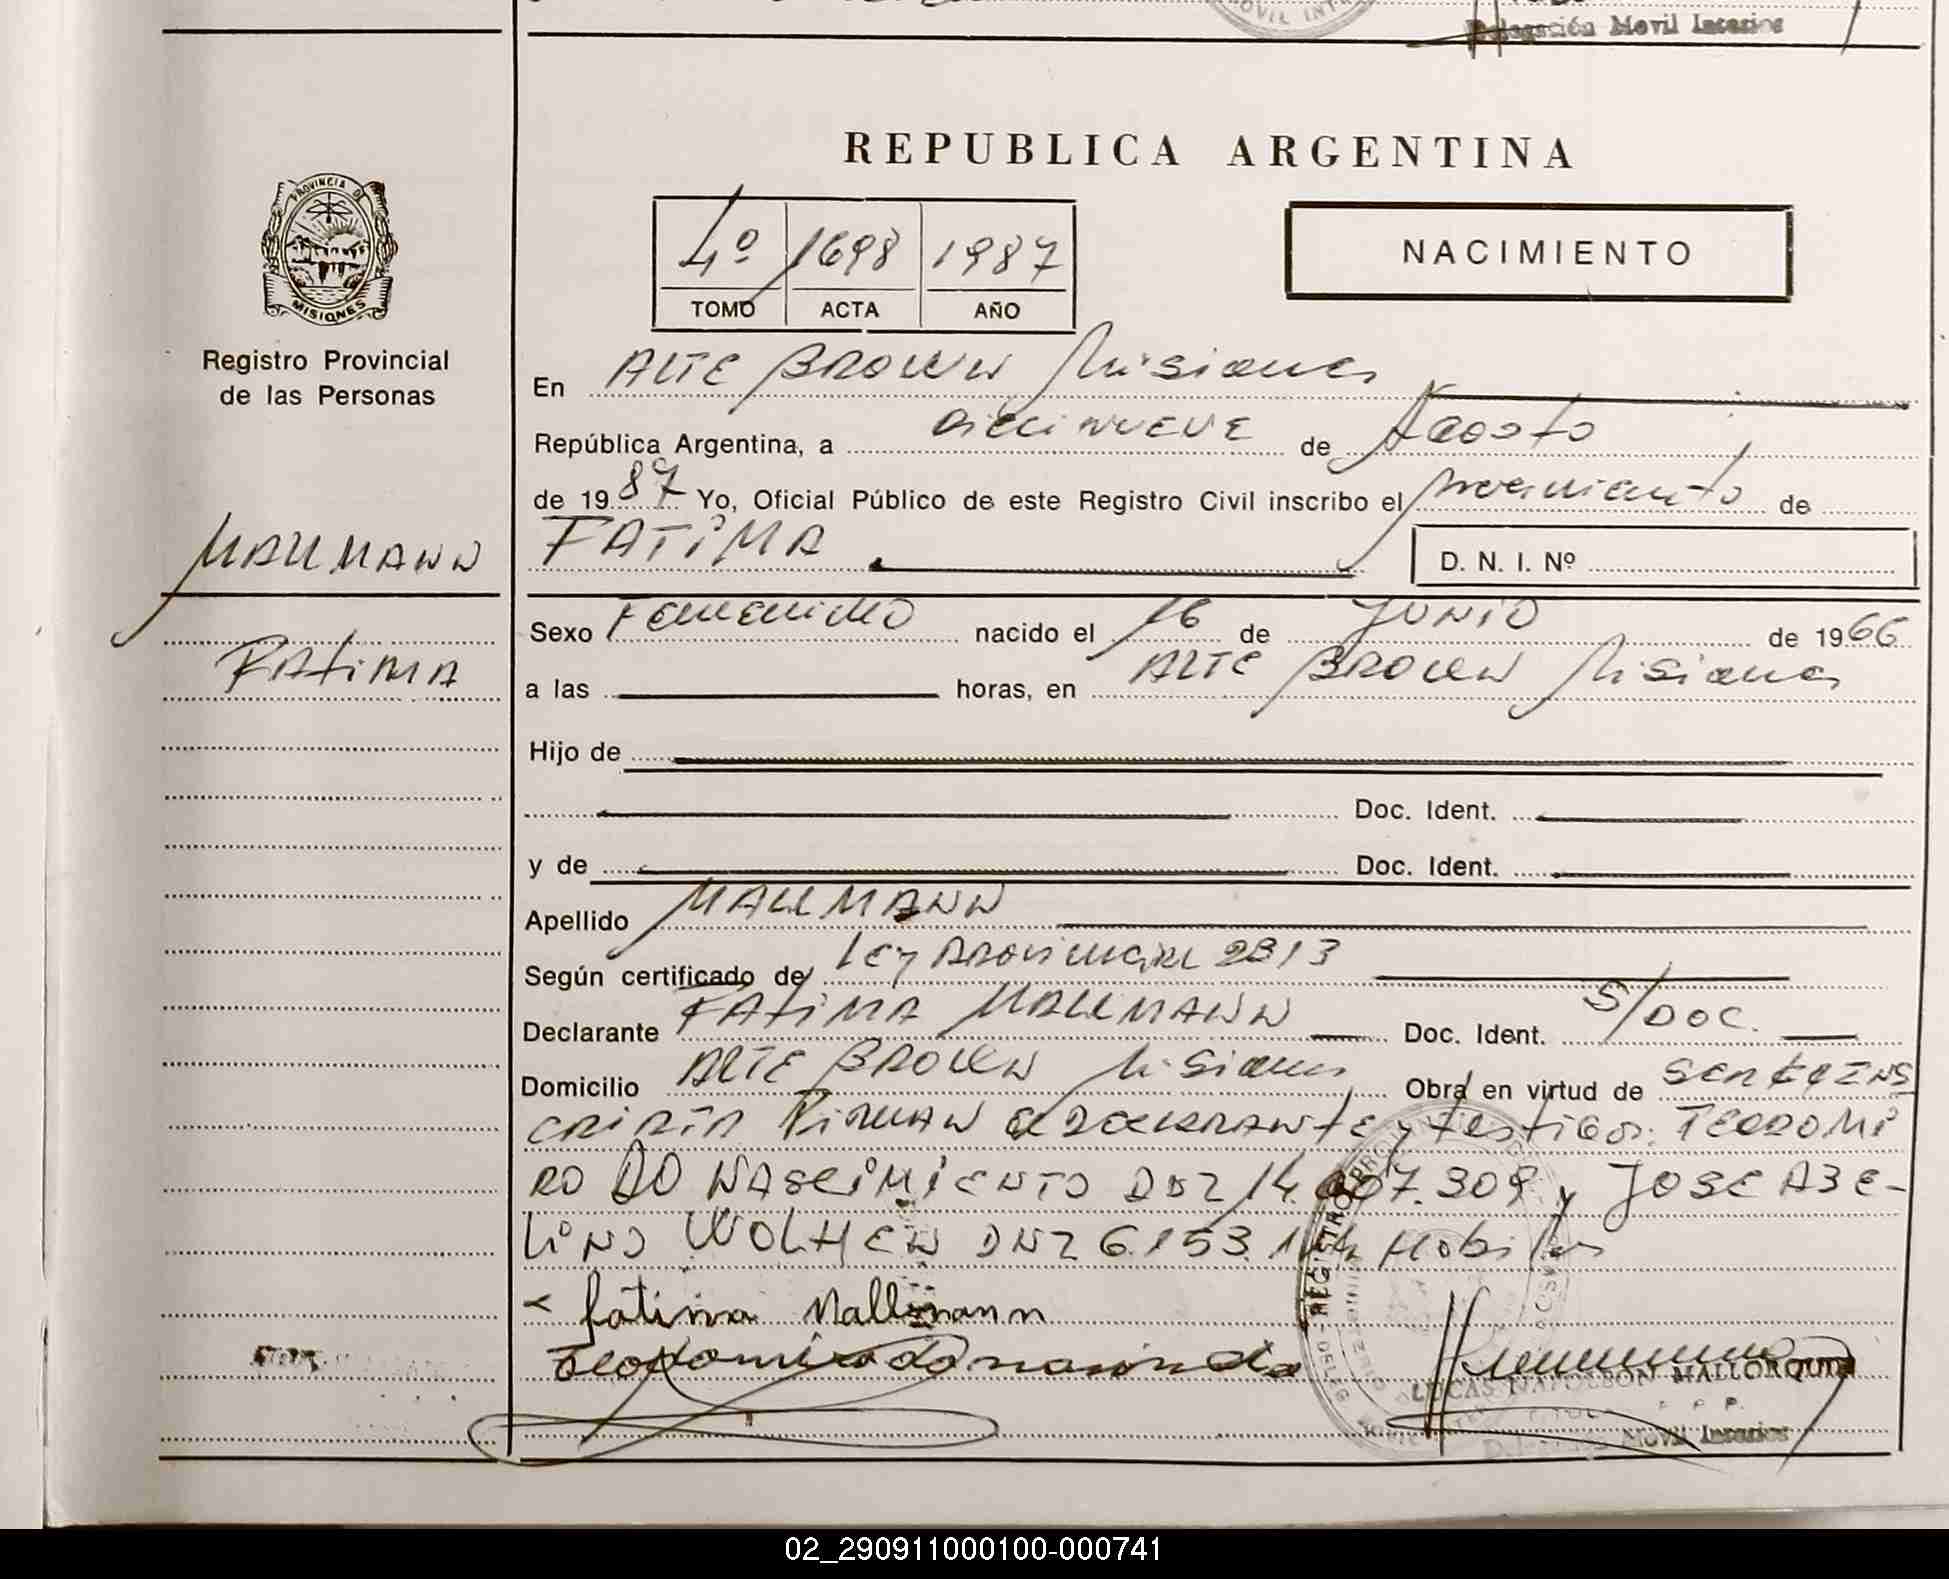 Delegación Movil Interior
REPUBLICA ARGENTINA
PROVINCIA DE
MISIONES
Registro Provincial
de las Personas
4º 1698 1987
TOMO ACTA AÑO
NACIMIENTO
En ALTE BROWN Misiones
República Argentina, a diecinueve de Agosto
de 1987 Yo, Oficial Público de este Registro Civil inscribo el nacimiento de
MALLMANN
FATIMA
D. N. I. Nº
Fatima
Sexo Femenino nacido el 16 de Junio de 1966
a las horas, en ALTE BROWN Misiones
Hijo de
Doc. Ident.
y de Doc. Ident.
Apellido MALLMANN
Según certificado de Ley Provincial 2813
Declarante FATIMA MALLMANN Doc. Ident. S/DOC.
Domicilio ALTE BROWN Misiones Obra en virtud de ser
Firman declarante y testigos: TEODOMI
RO DO NASCIMIENTO DNI y JOSE ABE-
LINO WOLHEN DNI 6.153.
Fatima Mallmann
LUCAS NAPOLEON MALLORQUIN
Delegación Movil Interior
02_290911000100-000741